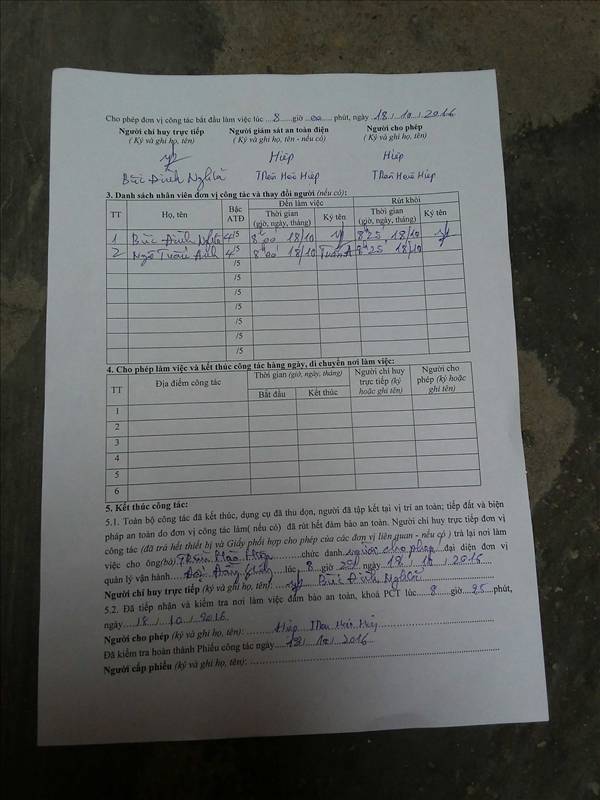 Cho phép đơn vị công tác bắt đầu làm việc lúc ...8.....giờ ..00..... phút, ngày 18 / 10 / 2016
Người chỉ huy trực tiếp Người giám sát an toàn điện Người cho phép
( Ký và ghi họ, tên) ( Ký và ghi họ, tên - nếu có) ( Ký và ghi họ, tên)
Hiệp Hiệp
Bùi Đình Nghĩa Thân Hoà Hiệp Thân Hoà Hiệp
3. Danh sách nhân viên đơn vị công tác và thay đổi người (nếu có):
TT Họ, tên Bậc ATĐ Đến làm việc Rút khỏi
Thời gian (giờ, ngày, tháng) Ký tên Thời gian (giờ, ngày, tháng) Ký tên
1 Bùi Đình Nghĩa 4/5 8h00 18/10 8h25 18/10
2 Ngô Tuấn Anh 4/5 8h00 18/10 Tuấn A 8h25 18/10
/5
/5
/5
/5
/5
/5
4. Cho phép làm việc và kết thúc công tác hàng ngày, di chuyển nơi làm việc:
TT Địa điểm công tác Thời gian (giờ, ngày, tháng) Người chỉ huy trực tiếp (ký hoặc ghi tên) Người cho phép (ký hoặc ghi tên)
Bắt đầu Kết thúc
1
2
3
4
5
6
5. Kết thúc công tác:
5.1. Toàn bộ công tác đã kết thúc, dụng cụ đã thu dọn, người đã tập kết tại vị trí an toàn; tiếp đất và biện
pháp an toàn do đơn vị công tác làm( nếu có) đã rút hết đảm bảo an toàn. Người chỉ huy trực tiếp đơn vị
công tác (đã trả hết thiết bị và Giấy phối hợp cho phép của các đơn vị liên quan - nếu có ) trả lại nơi làm
việc cho ông(bà) Thân Hoà Hiệp chức danh người cho phép đại diện đơn vị
quản lý vận hành lúc 8 giờ 25 ngày 18 / 10 / 2016
Người chỉ huy trực tiếp (ký và ghi họ, tên): Bùi Đình Nghĩa
5.2. Đã tiếp nhận và kiểm tra nơi làm việc đảm bảo an toàn, khoá PCT lúc 8 giờ 25 phút,
ngày 18 / 10 / 2016
Người cho phép (ký và ghi họ, tên): Hiệp Thân Hoà Hiệp
Đã kiểm tra hoàn thành Phiếu công tác ngày 18 / 10 / 2016
Người cấp phiếu (ký và ghi họ, tên):